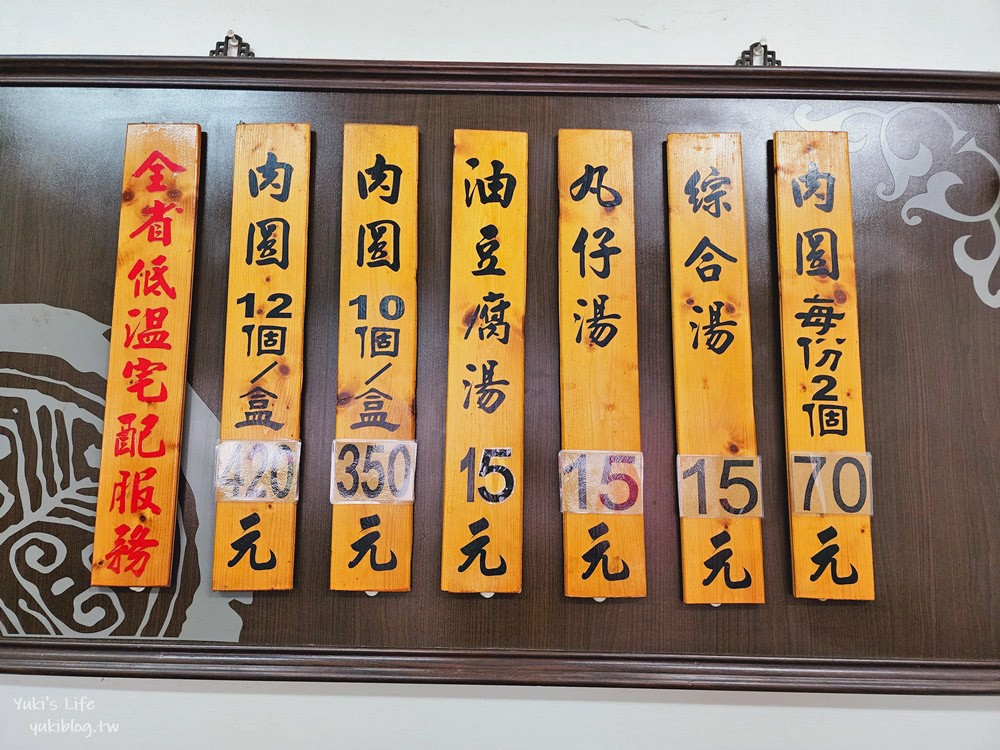 肉圓每份2個70元
綜合湯15元
丸仔湯15元
油豆腐湯15元
肉圓10個/盒350元
肉圓12個/盒420元
全省低溫宅配服務
Yuki's Life
yukiblog.tw